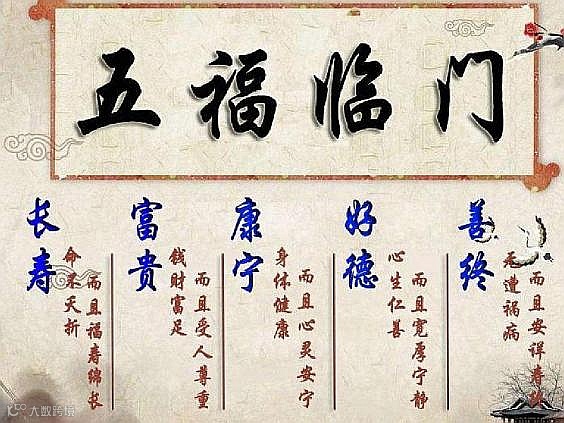 五福临门
长寿
命不夭折
而且福寿绵长
富贵
钱财富足
而且受人尊重
康宁
身体健康
而且心灵安宁
好德
心生仁善
而且宽厚宁静
善终
无遭祸病
而且安详寿
大数跨境